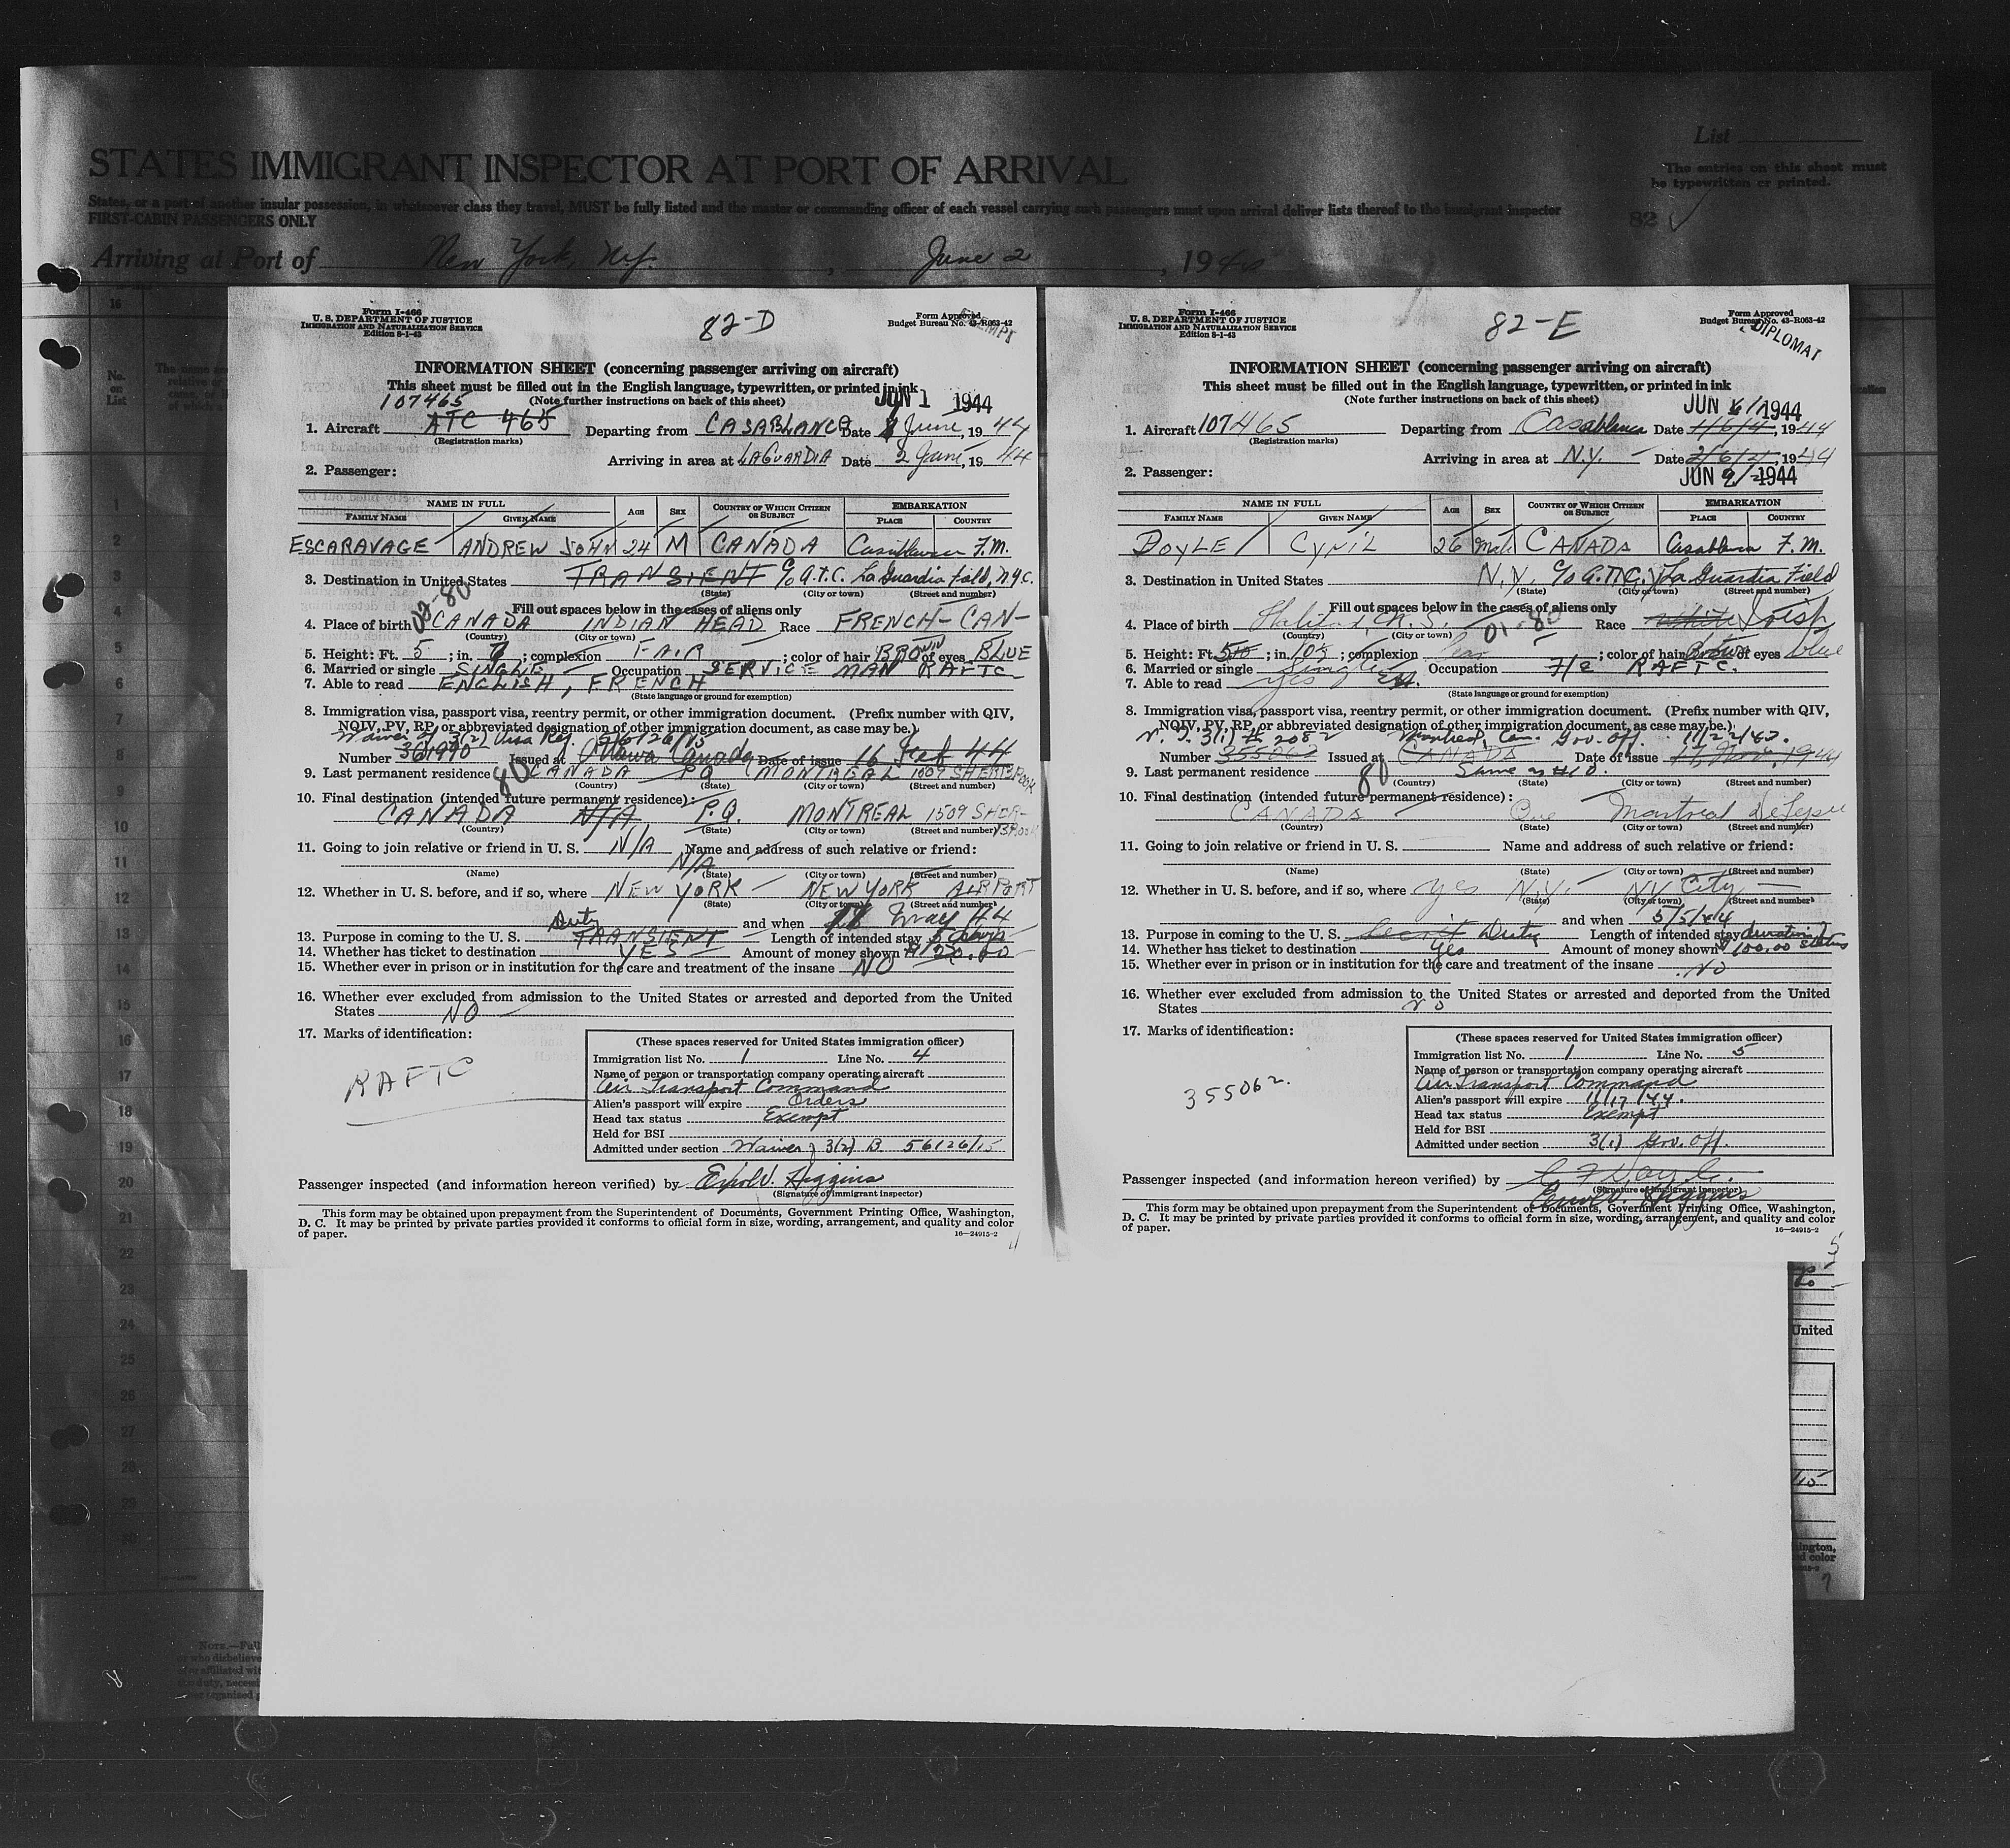 List
STATES IMMIGRANT INSPECTOR AT PORT OF ARRIVAL
The entries on this sheet must
be typewritten or printed.
States, or a port of another insular possession, in whatsoever class they travel, MUST be fully listed and the master or commanding officer of each vessel carrying such passengers must upon arrival deliver lists thereof to the immigrant inspector
FIRST-CABIN PASSENGERS ONLY
82
Arriving at Port of New York, N.Y. , June 2 , 194
Form I-466
U. S. DEPARTMENT OF JUSTICE
IMMIGRATION AND NATURALIZATION SERVICE
Edition 8-1-43
82-D
Form Approved
Budget Bureau No. 43-R063-42
INFORMATION SHEET (concerning passenger arriving on aircraft)
This sheet must be filled out in the English language, typewritten, or printed in ink
(Note further instructions on back of this sheet)
107465
JUN 1 1944
1. Aircraft ATC 465 Departing from CASABLANCA Date 1 June, 1944
(Registration marks)
Arriving in area at LAGUARDIA Date 2 June, 19 44
2. Passenger:
NAME IN FULL AGE SEX COUNTRY OF WHICH CITIZEN OR SUBJECT EMBARKATION
FAMILY NAME GIVEN NAME PLACE COUNTRY
ESCARAVAGE ANDREW JOHN 24 M CANADA Casablanca F.M.
3. Destination in United States TRANSIENT c/o A.T.C. La Guardia Field, N.Y.C.
(State) (City or town) (Street and number)
Fill out spaces below in the cases of aliens only
4. Place of birth CANADA INDIAN HEAD Race FRENCH-CAN-
(Country) (City or town)
5. Height: Ft. 5 ; in. 7 ; complexion FAIR ; color of hair BROWN of eyes BLUE
6. Married or single SINGLE Occupation SERVICE MAN RAFTC
7. Able to read ENGLISH, FRENCH
(State language or ground for exemption)
8. Immigration visa, passport visa, reentry permit, or other immigration document. (Prefix number with QIV,
NQIV, PV, RP, or abbreviated designation of other immigration document, as case may be.)
Waiver of 3(2) Visa Reg. 56126/15
Number 361990 Issued at Ottawa Canada Date of issue 16 Feb 44
9. Last permanent residence 80 CANADA PQ MONTREAL 1509 SHERBROOK
(Country) (State) (City or town) (Street and number)
10. Final destination (intended future permanent residence):
CANADA N/A P.Q. MONTREAL 1509 SHER-
(Country) (State) (City or town) (Street and number) BROOK
11. Going to join relative or friend in U. S. N/A Name and address of such relative or friend:
N/A
(Name) (State) (City or town) (Street and number)
12. Whether in U. S. before, and if so, where NEW YORK NEW YORK AIRPORT
(State) (City or town) (Street and number)
and when May 44
Duty
13. Purpose in coming to the U. S. TRANSIENT Length of intended stay 5 days
14. Whether has ticket to destination YES Amount of money shown
15. Whether ever in prison or in institution for the care and treatment of the insane NO
16. Whether ever excluded from admission to the United States or arrested and deported from the United
States NO
17. Marks of identification:
RAFTC
(These spaces reserved for United States immigration officer)
Immigration list No. 1 Line No. 4
Name of person or transportation company operating aircraft
Air Transport Command
Alien's passport will expire Orders
Head tax status Exempt
Held for BSI
Admitted under section Waiver of 3(2) B 56126/15
Passenger inspected (and information hereon verified) by Higgins
(Signature of immigrant inspector)
This form may be obtained upon prepayment from the Superintendent of Documents, Government Printing Office, Washington,
D. C. It may be printed by private parties provided it conforms to official form in size, wording, arrangement, and quality and color
of paper.
16—24915-2
Form I-466
U. S. DEPARTMENT OF JUSTICE
IMMIGRATION AND NATURALIZATION SERVICE
Edition 8-1-43
82-E
Form Approved
Budget Bureau No. 43-R063-42
DIPLOMAT
INFORMATION SHEET (concerning passenger arriving on aircraft)
This sheet must be filled out in the English language, typewritten, or printed in ink
(Note further instructions on back of this sheet)
JUN 1 1944
1. Aircraft 107465 Departing from Casablanca Date 1/6/4, 1944
(Registration marks)
Arriving in area at N.Y. Date 2/6/4, 1944
JUN 2 1944
2. Passenger:
NAME IN FULL AGE SEX COUNTRY OF WHICH CITIZEN OR SUBJECT EMBARKATION
FAMILY NAME GIVEN NAME PLACE COUNTRY
DOYLE CYRIL 26 Male CANADA Casablanca F.M.
3. Destination in United States N.Y. c/o A.T.C. La Guardia Field
(State) (City or town) (Street and number)
Fill out spaces below in the cases of aliens only
4. Place of birth N.S. 01-80 Race White Irish
(Country) (City or town)
5. Height: Ft. 5 ; in. 10½ ; complexion ; color of hair Brown of eyes blue
6. Married or single Single Occupation RAFTC.
7. Able to read yes
(State language or ground for exemption)
8. Immigration visa, passport visa, reentry permit, or other immigration document. (Prefix number with QIV,
NQIV, PV, RP, or abbreviated designation of other immigration document, as case may be.)
3(1) # 2082 Montreal, Can. Gov. Off. 11/22/43.
Number 355062 Issued at CANADA Date of issue 17 Nov., 1944
9. Last permanent residence 80 Same as #10.
(Country) (State) (City or town) (Street and number)
10. Final destination (intended future permanent residence):
CANADA Que Montreal
(Country) (State) (City or town) (Street and number)
11. Going to join relative or friend in U. S. Name and address of such relative or friend:
(Name) (State) (City or town) (Street and number)
12. Whether in U. S. before, and if so, where yes N.Y. NY City
(State) (City or town) (Street and number)
and when 5/5/44
13. Purpose in coming to the U. S. Duty Length of intended stay duration of
14. Whether has ticket to destination yes Amount of money shown $100.00 status
15. Whether ever in prison or in institution for the care and treatment of the insane NO
16. Whether ever excluded from admission to the United States or arrested and deported from the United
States no
17. Marks of identification:
355062.
(These spaces reserved for United States immigration officer)
Immigration list No. 1 Line No. 5
Name of person or transportation company operating aircraft
Air Transport Command
Alien's passport will expire 11/17/44.
Head tax status Exempt
Held for BSI
Admitted under section 3(1) Gov. Off.
Passenger inspected (and information hereon verified) by C F Doyle.
(Signature of immigrant inspector)
Higgins
This form may be obtained upon prepayment from the Superintendent of Documents, Government Printing Office, Washington,
D. C. It may be printed by private parties provided it conforms to official form in size, wording, arrangement, and quality and color
of paper.
16—24915-2
5
United